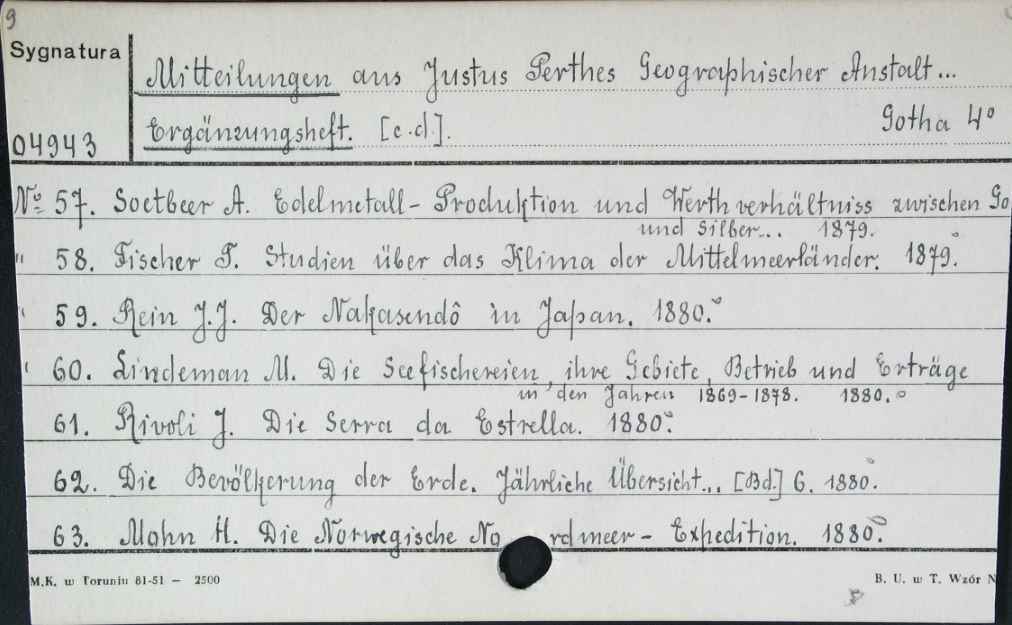 9
Sygnatura
Mitteilungen aus Justus Perthes Geographischer Anstalt...
04943
Ergänzungsheft. [c.d.]. Gotha 4°
№ 57. Soetbeer A. Edelmetall-Produktion und Werthverhältniss zwischen Go
und Silber... 1879.
" 58. Fischer T. Studien über das Klima der Mittelmeerländer. 1879.
59. Rein J.J. Der Nakasendô in Japan. 1880.
60. Lindeman M. Die Seefischereien, ihre Gebiete, Betrieb und Erträge
in den Jahren 1869-1878. 1880.
61. Rivoli J. Die Serra da Estrella. 1880.
62. Die Bevölkerung der Erde. Jährliche Übersicht... [Bd.] 6. 1880.
63. Mohn H. Die Norwegische No rdmeer-Expedition. 1880.
M.K. w Toruniu 81-51 — 2500 B. U. w T. Wzór N